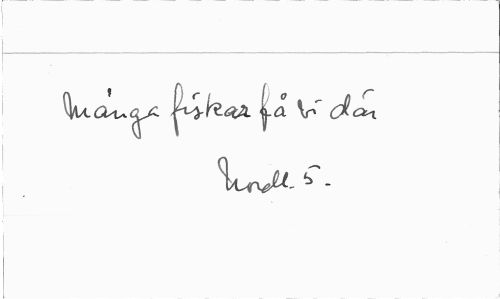 Många fiskar få vi där
Nordl. 5.